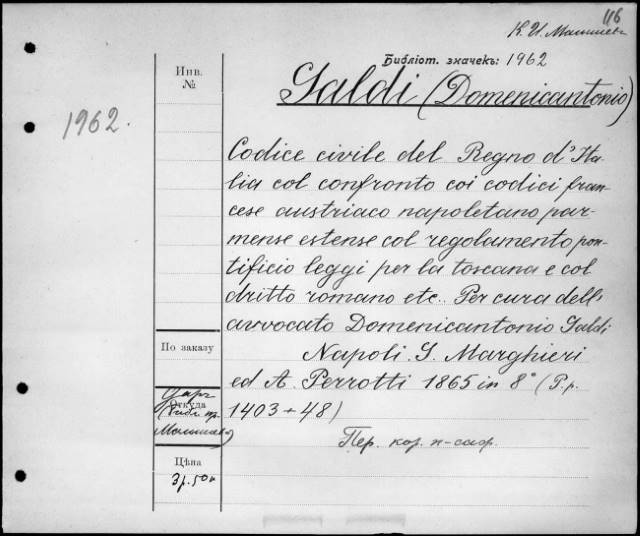 116
К. И. Малышевъ
Библіот. значекъ: 1962
Инв.
№
Galdi (Domenicantonio)
1962.
Codice civile del Regno d'Ita-
lia col confronto coi codici fran-
cese austriaco napoletano par-
mense estense col regolamento pon-
tificio leggi per la toscana e col
dritto romano etc. Per cura dell'
avvocato Domenicantonio Galdi
По заказу
Napoli. G. Marghieri
ed A. Perrotti 1865 in 8° (P. p.
Даръ
Откуда
1403 + 48)
Малышева)
Пер. кор. п-саф.
Цѣна
3 р. 50 к